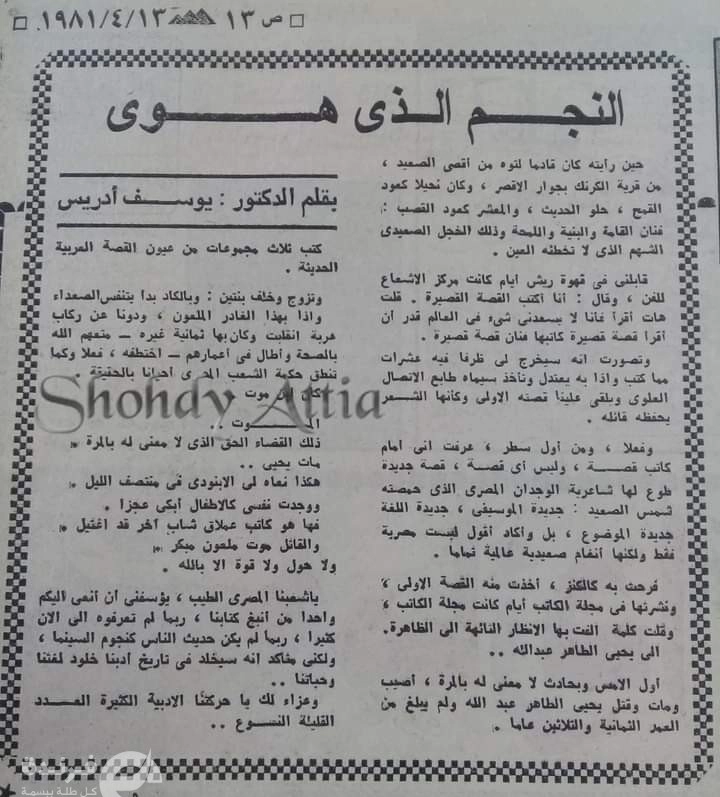 ص ١٣ ١٩٨١/٤/١٣
النجم الذى هوى
حين رأيته كان قادما لتوه من أقصى الصعيد ،
من قرية الكرنك بجوار الاقصر ، وكان نحيلا كعود
القمح ، حلو الحديث ، والمعشر كعود القصب :
فنان القامة والبنية واللمحة وذلك الخجل الصعيدى
الشهم الذى لا تخطئه العين .
قابلنى فى قهوة ريش أيام كانت مركز الاشعاع
للفن ، وقال : أنا أكتب القصة القصيرة . قلت
هات أقرأ فأنا لا يسعدنى شىء فى العالم قدر أن
أقرأ قصة قصيرة كاتبها فنان قصة قصيرة .
وتصورت انه سيخرج لى ظرفا فيه عشرات
مما كتب واذا به يعتدل وتأخذ سيماه طابع الاتصال
العلوى ويلقى علينا قصته الاولى وكأنها الشعر
يحفظه قائله .
وفعلا ، ومن أول سطر ، عرفت انى أمام
كاتب قصة ، وليس أى قصة ، قصة جديدة
طوع لها شاعرية الوجدان المصرى الذى حمصته
شمس الصعيد : جديدة الموسيقى ، جديدة اللغة
جديدة الموضوع ، بل وأكاد أقول ليست مصرية
فقط ولكنها أنغام صعيدية عالمية تماما .
فرحت به كالكنز ، أخذت منه القصة الاولى ،
ونشرتها فى مجلة الكاتب أيام كانت مجلة الكاتب ،
وقلت كلمة الفت بها الانظار التائهة الى الظاهرة .
الى يحيى الطاهر عبدالله ..
أول الامس وبحادث لا معنى له بالمرة ، أصيب
ومات وقتل يحيى الطاهر عبد الله ولم يبلغ من
العمر الثمانية والثلاثين عاما .
بقلم الدكتور : يوسف أدريس
كتب ثلاث مجموعات من عيون القصة العربية
الحديثة .
وتزوج وخلف بنتين : وبالكاد بدا يتنفس الصعداء
واذا بهذا الغادر الملعون ، ودونا عن ركاب
عربة انقلبت وكان بها ثمانية غيره — متعهم الله
بالصحة وأطال فى أعمارهم — اختطفه ، فعلا وكما
تنطق حكمة الشعب المصرى أحيانا بالحقيقة .
كان ابن موت .
الموت ..
ذلك القضاء الحق الذى لا معنى له بالمرة .
مات يحيى ..
هكذا نعاه لى الابنودى فى منتصف الليل .
ووجدت نفسى كالاطفال أبكى عجزا .
فها هو كاتب عملاق شاب آخر قد اغتيل .
والقاتل موت ملعون مبكر .
ولا حول ولا قوة الا بالله .
ياشعبنا المصرى الطيب ، يؤسفنى أن أنعى اليكم
واحدا من أنبغ كتابنا ، ربما لم تعرفوه الى الان
كثيرا ، ربما لم يكن حديث الناس كنجوم السينما ،
ولكنى متأكد انه سيخلد فى تاريخ أدبنا خلود لغتنا
وحياتنا ..
وعزاء لك يا حركتنا الادبية الكثيرة العدد
القليلة النبوغ ..
Shohdy Attia
كل طلة ببسمة